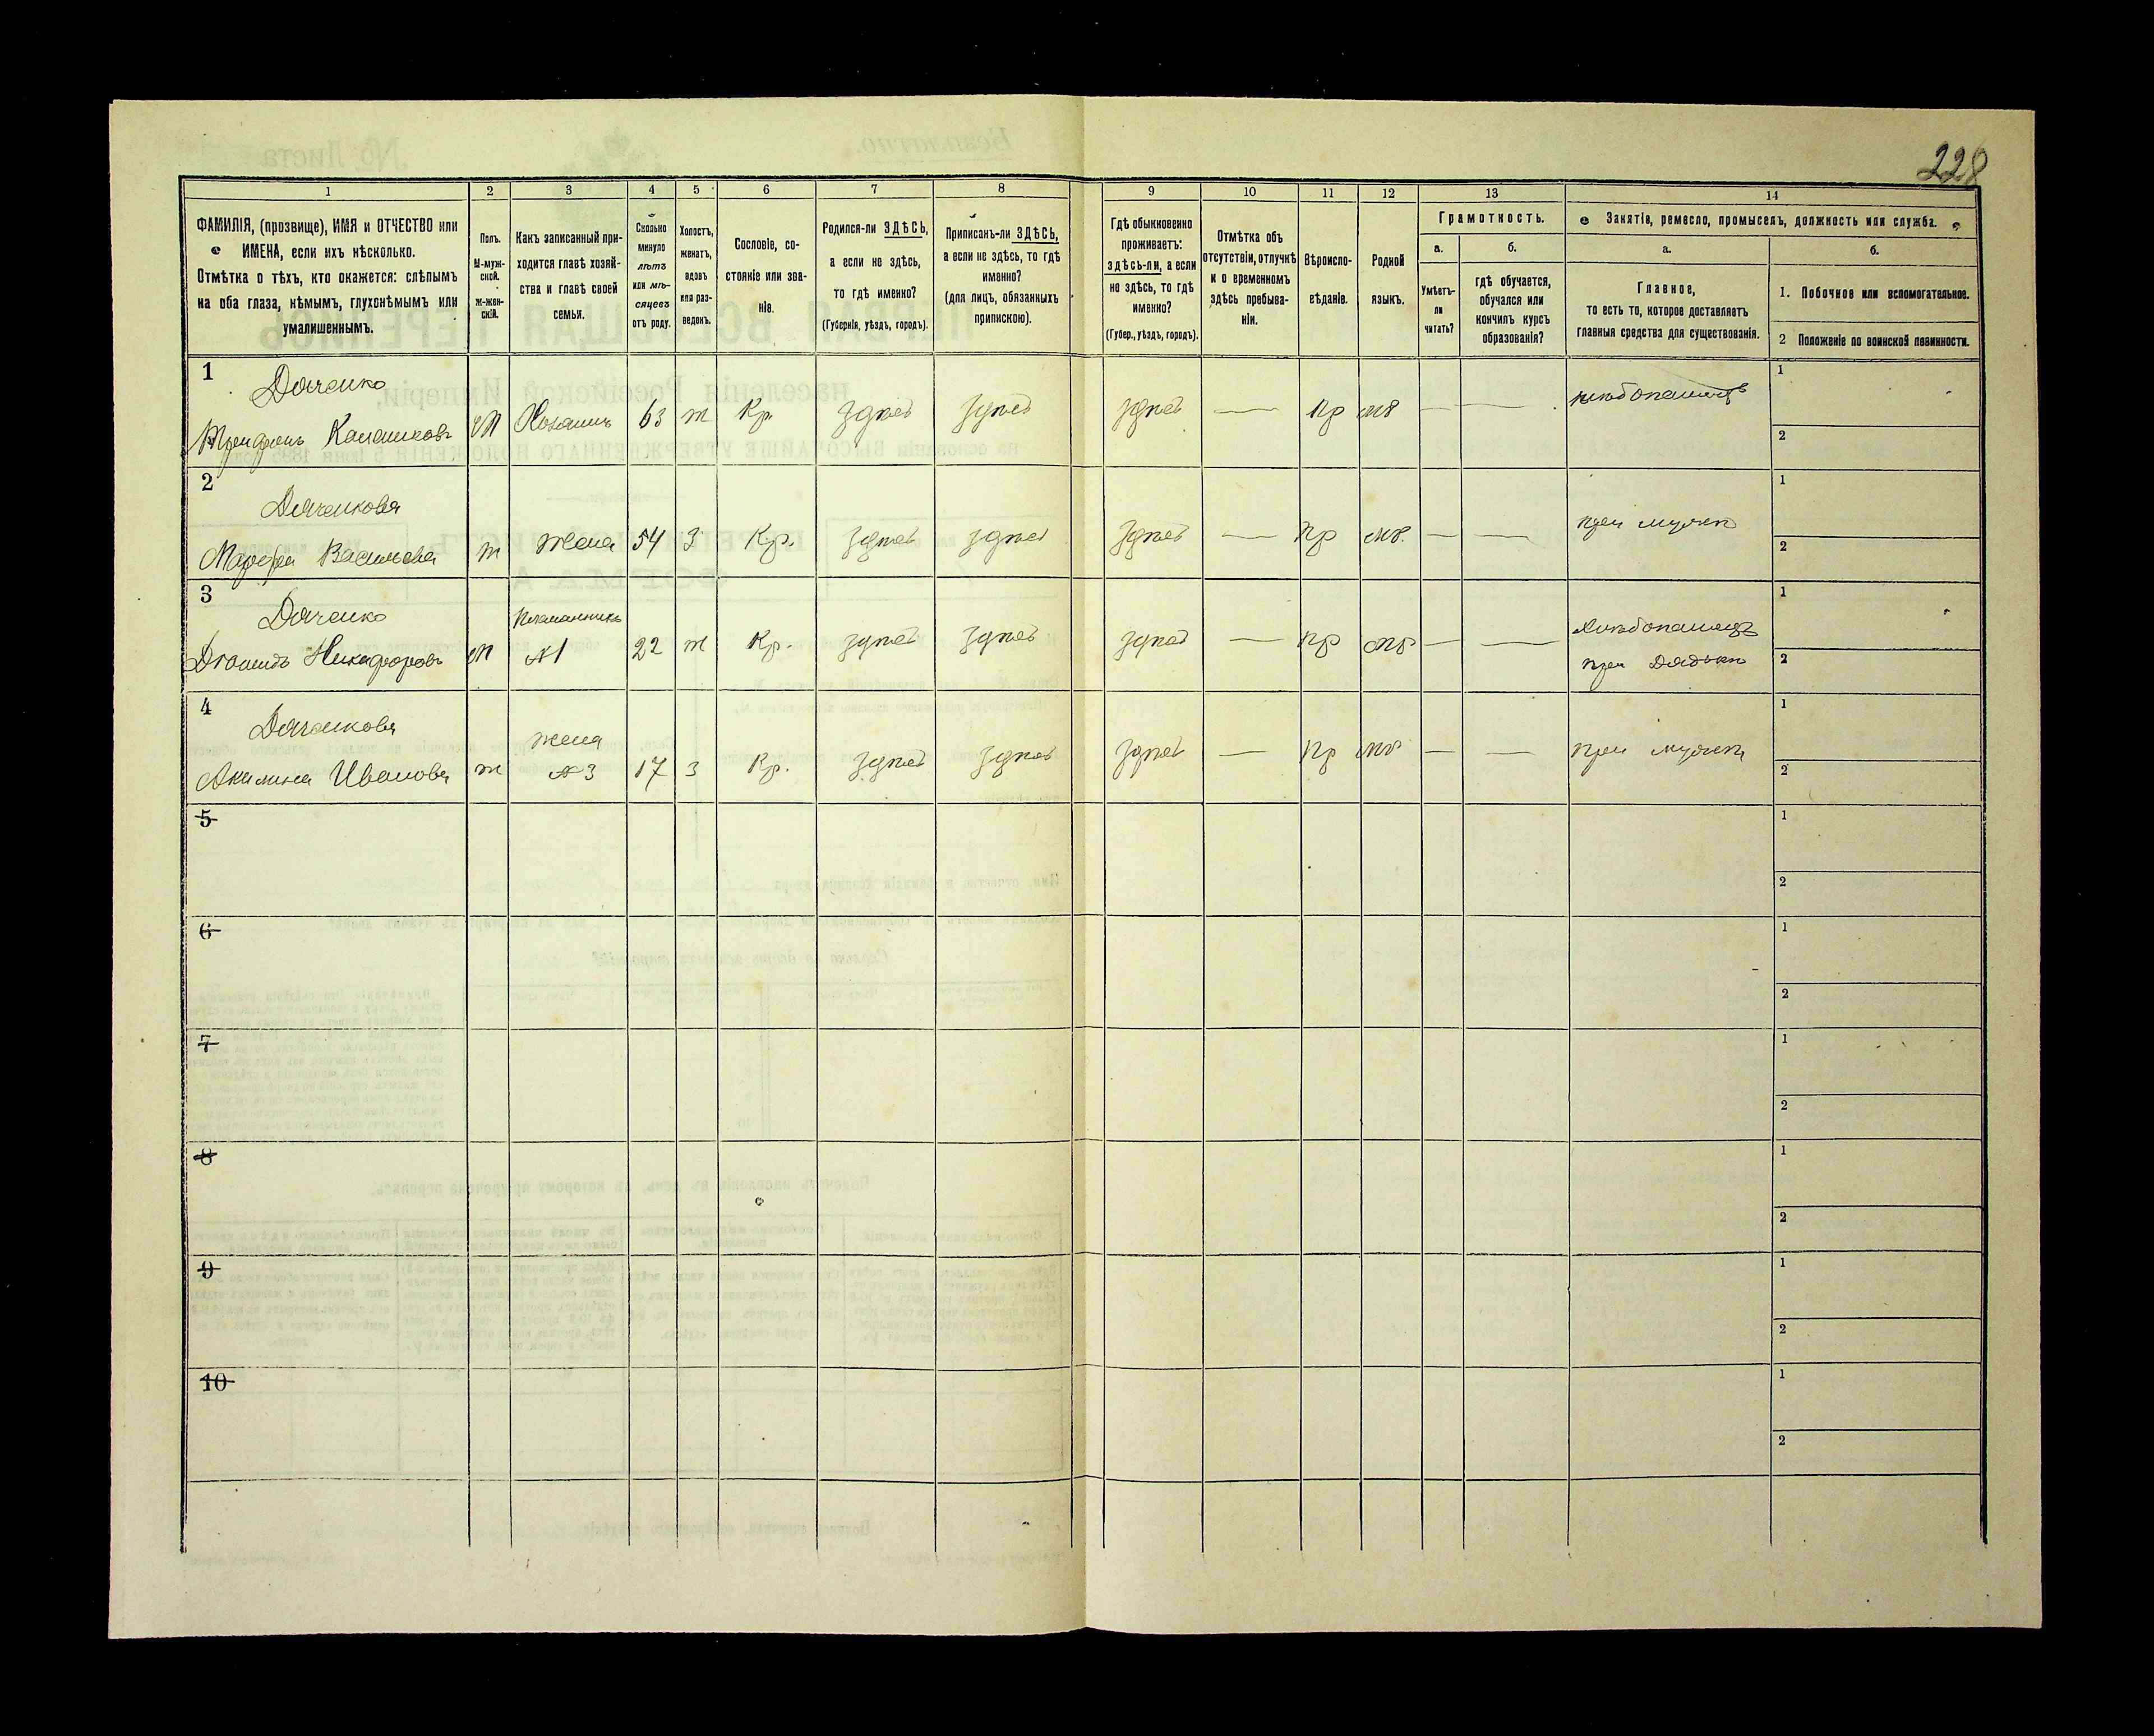 228
1 2 3 4 5 6 7 8 9 10 11 12 13 14
ФАМИЛІЯ, (прозвище), ИМЯ и ОТЧЕСТВО или
ИМЕНА, если ихъ нѣсколько.
Отмѣтка о тѣхъ, кто окажется: слѣпымъ
на оба глаза, нѣмымъ, глухонѣмымъ или
умалишеннымъ.
Полъ.
М-муж-
ской.
Ж-жен-
скій.
Какъ записанный при-
ходится главѣ хозяй-
ства и главѣ своей
семьи.
Сколько
минуло
лѣтъ
или мѣ-
сяцевъ
отъ роду.
Холостъ,
женатъ,
вдовъ
или раз-
веденъ.
Сословіе, со-
стояніе или зва-
ніе.
Родился-ли ЗДѢСЬ,
а если не здѣсь,
то гдѣ именно?
(Губернія, уѣздъ, городъ).
Приписанъ-ли ЗДѢСЬ,
а если не здѣсь, то гдѣ
именно?
(для лицъ, обязанныхъ
припискою).
Гдѣ обыкновенно
проживаетъ:
здѣсь-ли, а если
не здѣсь, то гдѣ
именно?
(Губер., уѣздъ, городъ).
Отмѣтка объ
отсутствіи, отлучкѣ
и о временномъ
здѣсь пребыва-
ніи.
Вѣроиспо-
вѣданіе.
Родной
языкъ.
Грамотность.
а.
Умѣетъ-
ли
читать?
б.
гдѣ обучается,
обучался или
кончилъ курсъ
образованія?
Занятіе, ремесло, промыселъ, должность или служба.
а.
Главное,
то есть то, которое доставляетъ
главныя средства для существованія.
б.
1. Побочное или вспомогательное.
2 Положеніе по воинской повинности.
1
Дяченко
Трифонъ М Хозяинъ 63 ж Кр. здѣсь здѣсь здѣсь — Пр мр — — хлѣбопашецъ
1
2
2
Дяченкова
Марфа Васильева ж жена 54 З Кр. здѣсь здѣсь здѣсь — Пр мр. — — при мужѣ
1
2
3
Дяченко
Никифоровъ М Племянникъ №1 22 ж Кр. здѣсь здѣсь здѣсь — Пр мр — — Хлѣбопашецъ
при Дядькѣ
1
2
4
Дяченкова
Акилина Иванова ж жена №3 17 З Кр. здѣсь здѣсь здѣсь — Пр мр — — при мужѣ
1
2
5
1
2
6
1
2
7
1
2
8
1
2
9
1
2
10
1
2